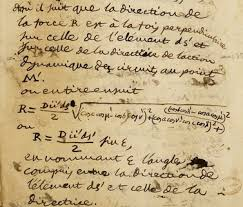 d'où il suit que la direction de
la force R est à la fois perpendiculaire
sur celle de l'élément ds' et
sur celle de la directrice de l'action
dynamique des circuits au point
M'.
on en tire ensuit
R = Dii'ds' / 2 √
ou
R = Dii'ds' / 2 sin ε,
en nommant ε l'angle
compris entre la direction de
l'élément ds' et celle de la
directrice.